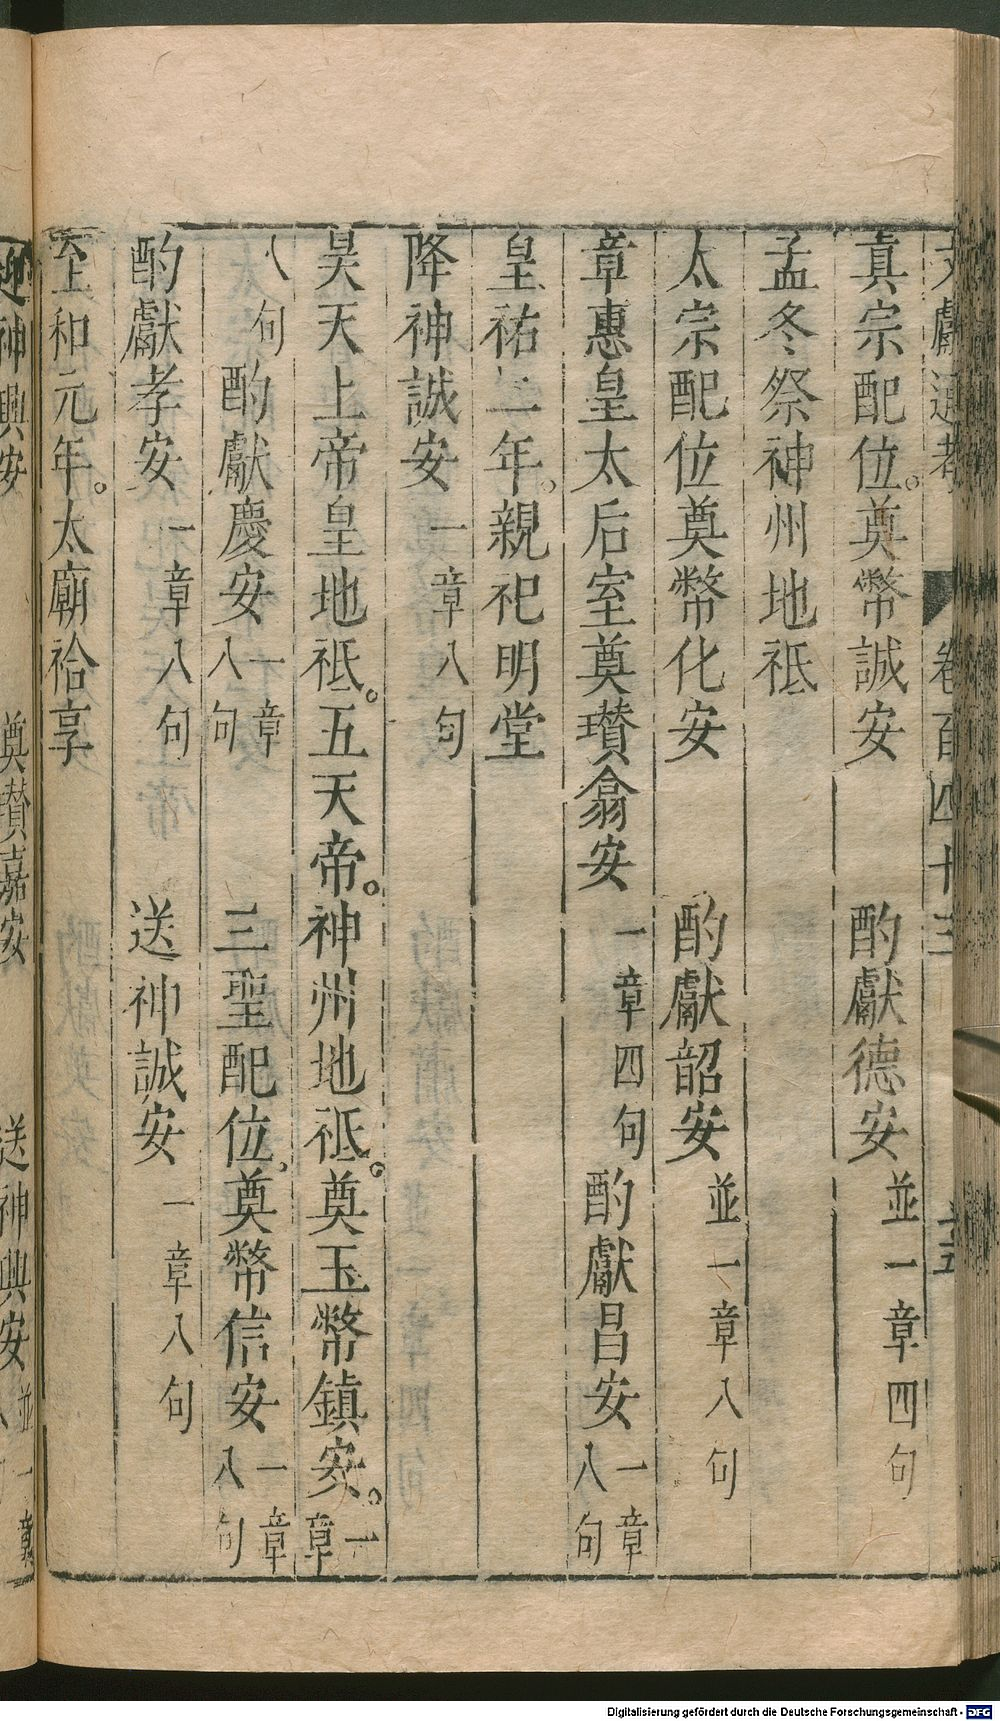 文獻通考 卷百四十三
真宗配位。奠幣誠安 酌獻德安 並一章四句
孟冬祭神州地祇
太宗配位奠幣化安 酌獻韶安 並一章八句
章惠皇太后室奠瓚翕安 一章四句 酌獻昌安 一章八句
皇祐二年。親祀明堂
降神誠安 一章八句
昊天上帝皇地祇。五天帝。神州地祇。奠玉幣鎮安。一章
八句 酌獻慶安 一章八句 三聖配位。奠幣信安 一章八句
酌獻孝安 一章八句 送神誠安 一章八句
至和元年。太廟祫享
迎神興安 奠瓚嘉安 送神興安 並一章
Digitalisierung gefördert durch die Deutsche Forschungsgemeinschaft - DFG